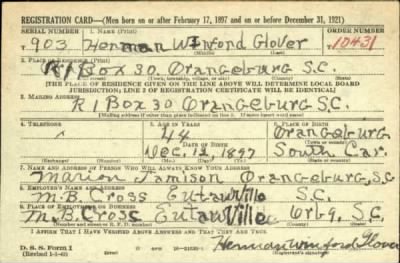 REGISTRATION CARD—(Men born on or after February 17, 1897 and on or before December 31, 1921)
SERIAL NUMBER 1. NAME (Print) ORDER NUMBER
T 903 Herman Winford Glover 10431
(First) (Middle) (Last)
2. PLACE OF RESIDENCE (Print)
R1 Box 30 Orangeburg S.C.
(Number and street) (Town, township, village, or city) (County) (State)
[THE PLACE OF RESIDENCE GIVEN ON THE LINE ABOVE WILL DETERMINE LOCAL BOARD
JURISDICTION; LINE 2 OF REGISTRATION CERTIFICATE WILL BE IDENTICAL]
3. MAILING ADDRESS
R 1 Box 30 Orangeburg S.C.
[Mailing address if other than place indicated on line 2. If same insert word same]
4. TELEPHONE 5. AGE IN YEARS 6. PLACE OF BIRTH
44 Orangeburg
DATE OF BIRTH (Town or county)
Dec. 12, 1897 South Car.
(Exchange) (Number) (Mo.) (Day) (Yr.) (State or country)
7. NAME AND ADDRESS OF PERSON WHO WILL ALWAYS KNOW YOUR ADDRESS
Marion Jamison Orangeburg, S.C.
8. EMPLOYER'S NAME AND ADDRESS
M.B. Cross Eutawville S.C.
9. PLACE OF EMPLOYMENT OR BUSINESS
M.B. Cross Eutawville Orbg. S.C.
(Number and street or R. F. D. number) (Town) (County) (State)
I AFFIRM THAT I HAVE VERIFIED ABOVE ANSWERS AND THAT THEY ARE TRUE.
D. S. S. Form 1
(Revised 1-1-42) (over) Herman Winford Glover